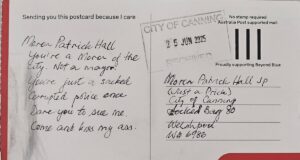 Sending you this postcard because I care
No stamp required
Australia Post supported mail
CITY OF CANNING
25 JUN 2025
RECEIVED
Proudly supporting Beyond Blue
Moren Patrick Hall
You're a Moren of the
city. Not a mayor.
You're just a sucked
Corrupted police once
Dare you to sue me
Come and kiss my ass.
Moren Patrick Hall JP
(What a Prick)
City of Canning
Locked Bag 80
Welshpool
WA 6986